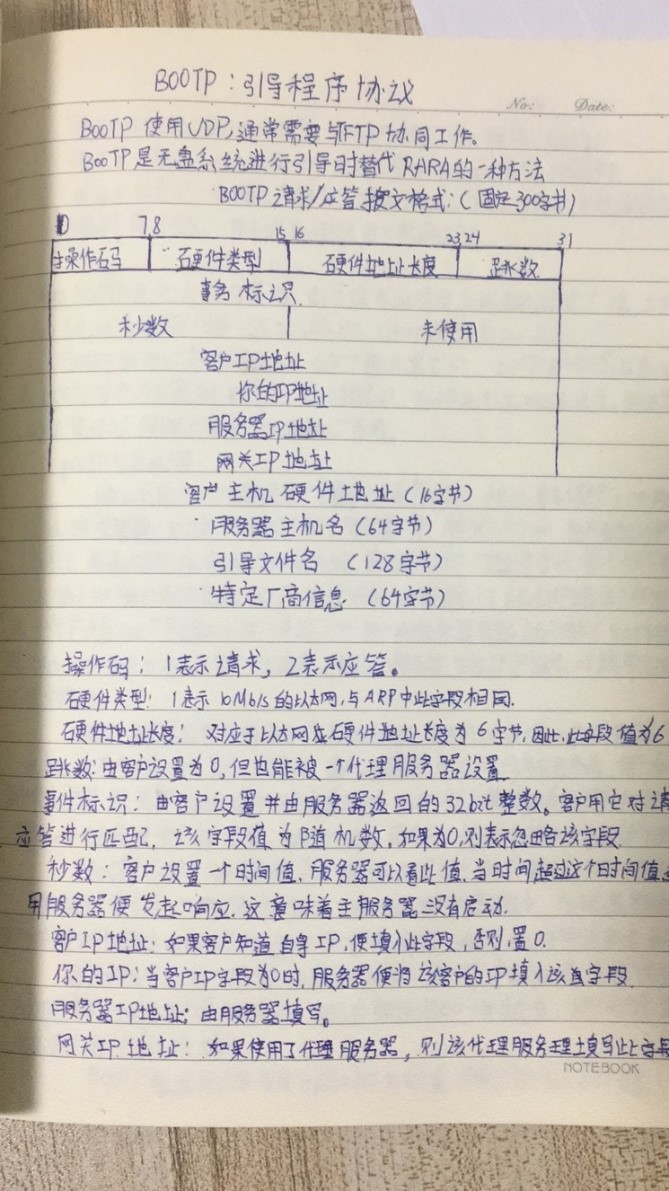 BOOTP：引导程序协议
No:    Date:
BOOTP 使用UDP,通常需要与TFTP协同工作。
BOOTP是无盘系统进行引导时替代RARA的一种方法
BOOTP请求/应答报文格式：(固定300字节)
0 7 8 15 16 23 24 31
操作码 硬件类型 硬件地址长度 跳数
事务标识
秒数 未使用
客户IP地址
你的IP地址
服务器IP地址
网关IP地址
客户主机硬件地址（16字节）
服务器主机名（64字节）
引导文件名（128字节）
特定厂商信息（64字节）
操作码：1表示请求，2表示应答。
硬件类型：1表示10Mb/s的以太网,与ARP中此字段相同.
硬件地址长度：对应于以太网 硬件地址长度为6字节,因此,此字段值为6
跳数：由客户设置为0,但也能被一个代理服务器设置
事件标识：由客户设置并由服务器返回的32bit整数。客户用它对请
应答进行匹配，该字段值为随机数,如果为0,则表示忽略该字段.
秒数：客户设置一个时间值,服务器可以看此值,当时间超过这个时间值
用服务器便发起响应,这意味着主服务器没有启动.
客户IP地址：如果客户知道自身IP,便填入此字段,否则,置0.
你的IP：当客户IP字段为0时,服务器便将该客户的IP填入该 字段.
服务器IP地址：由服务器填写。
网关IP地址：如果使用了代理服务器，则该代理服务 填写此字段
NOTEBOOK